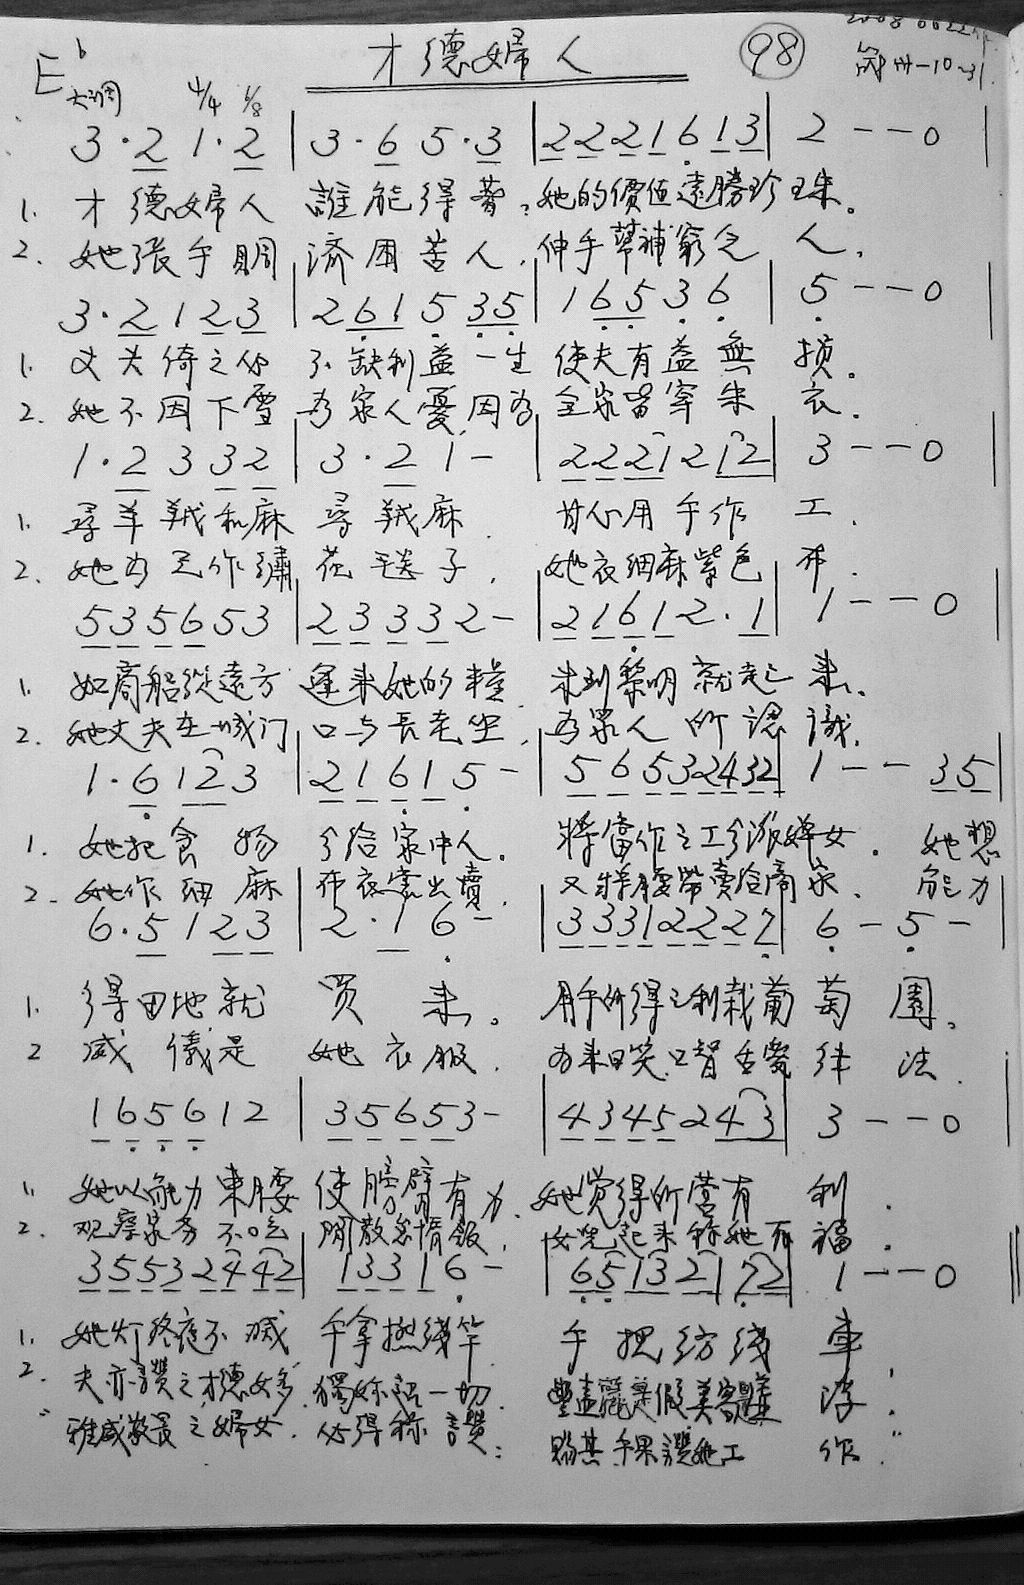 才德婦人 98
E♭大調 4/4 6/8 箴卅一10~31
3·2 1·2 | 3·6 5·3 | 2 2 2 1 6 1 3 | 2 - - 0
1. 才德婦人 誰能得著。她的價值遠勝珍珠。
2. 她張手賙 濟困苦人,伸手幫補窮乏人,
3·2 1 2 3 | 2 6 1 5 3 5 | 1 6 5 3 6 | 5 - - 0
1. 丈夫倚之必 不缺利益一生 使夫有益無損。
2. 她不因下雪 為家人憂,因為 全家皆穿朱衣.
1·2 3 3 2 | 3·2 1 - | 2 2 2 1 2 1 2 | 3 - - 0
1. 尋羊羢和麻 尋羢麻. 甘心用手作工.
2. 她为己作繡 花毯子, 她衣细麻紫色布.
5 3 5 6 5 3 | 2 3 3 3 2 - | 2 1 6 1 2·1 | 1 - - 0
1. 如商船從遠方 運來她的糧. 未到黎明就起来.
2. 她丈夫在城门 口与長老坐, 为眾人所認識.
1·6 1 2 3 | 2 1 6 1 5 - | 5 6 5 3 2 4 3 2 | 1 - - 3 5
1. 她把食物 分给家中人。 將當作之工分派婢女. 她想
2. 她作细麻 布衣裳出賣, 又將腰帶賣给商家. 能力
6·5 1 2 3 | 2·1 6 - | 3 3 3 1 2 2 2 7 | 6 - 5 -
1. 得田地就 買来。 用手所得之利栽葡萄園。
2 威儀是 她衣服. 想来日笑口智舌愛律法.
1 6 5 6 1 2 | 3 5 6 5 3 - | 4 3 4 5 2 4 3 | 3 - - 0
1. 她以能力束腰 使膀臂有力. 她覺得所营有利.
2. 观察家务不吃 閒散怠惰飯, 女兒起来称她有福.
3 5 5 3 2 4 4 2 | 1 3 3 1 6 - | 6 5 1 3 2 1 7 2 | 1 - - 0
1. 她灯终夜不滅 手拿撚线竿. 手把纺线車.
2. 夫亦讚之才德女多, 獨妳超一切. 豔麗是假美容虛浮.
〃 惟敬畏之婦女. 必得称讚; 賜其手果讚她工作.〃